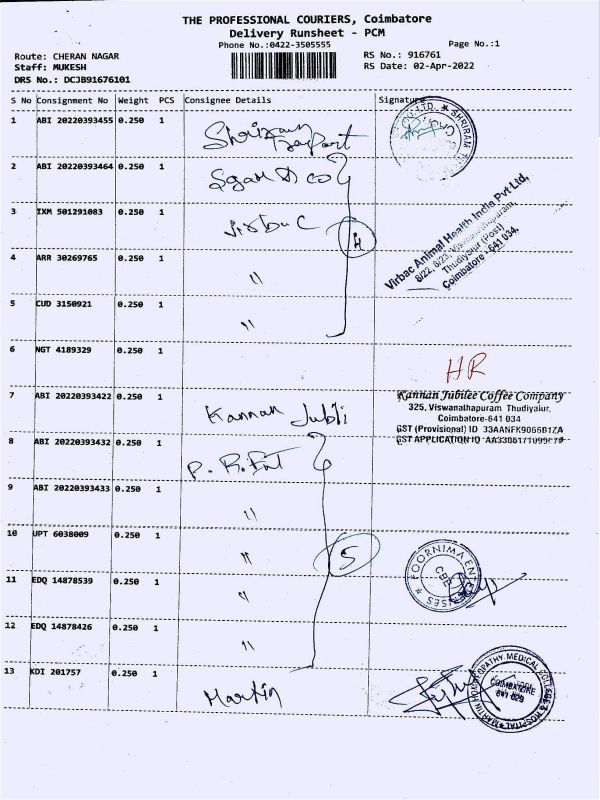 THE PROFESSIONAL COURIERS, Coimbatore
Delivery Runsheet - PCM
Phone No.:0422-3505555
Page No.:1
Route: CHERAN NAGAR
Staff: MUKESH
DRS No.: DCJB91676101
RS No.: 916761
RS Date: 02-Apr-2022
S No Consignment No Weight PCS Consignee Details Signature
1 ABI 20220393455 0.250 1
2 ABI 20220393464 0.250 1
3 IXM 501291083 0.250 1
4 ARR 30269765 0.250 1 "
5 CUD 3150921 0.250 1 "
4
Virbac Animal Health India Pvt Ltd,
6/22, 6/23, Viswanathapuram,
Thudiyalur (Post)
Coimbatore - 641 034.
6 NGT 4189329 0.250 1
HR
7 ABI 20220393422 0.250 1 Kannan Jubli
Kannan Jubilee Coffee Company
325, Viswanathapuram Thudiyalur,
Coimbatore-641 034
GST (Provisional) ID 33AANFK9066B1ZA
GST APPLICATION ID
8 ABI 20220393432 0.250 1
9 ABI 20220393433 0.250 1 "
10 UPT 6038009 0.250 1 "
5
POORNIMA ENTERPRISES
CBE
11 EDQ 14878539 0.250 1 "
12 EDQ 14878426 0.250 1 "
13 KDI 201757 0.250 1 Martin
MARTIN HOMOEOPATHY MEDICAL COLLEGE & HOSPITAL
COIMBATORE